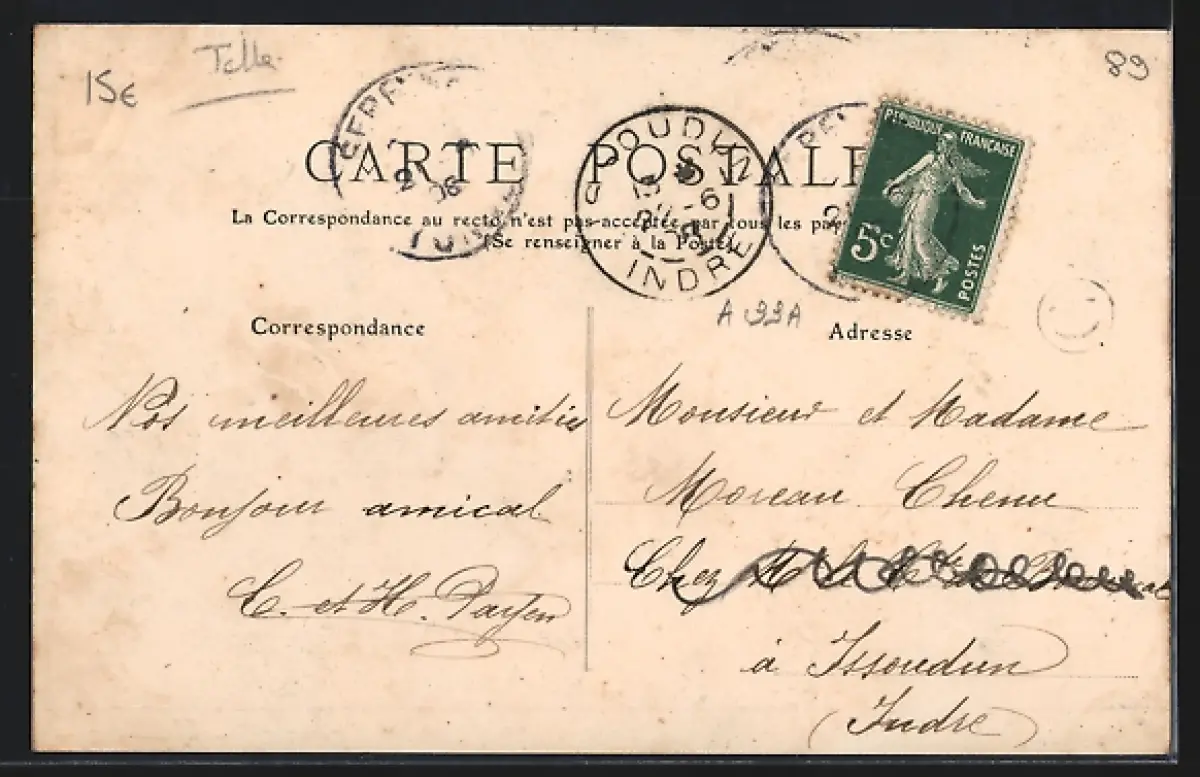 15€
89
CARTE POSTALE
La Correspondance au recto n'est pas acceptée par tous les
(Se renseigner à la Poste)
ISSOUDUN
INDRE
REPUBLIQUE FRANÇAISE
5c
POSTES
Correspondance
Adresse
Nos meilleures amitiés
Bonjour amical
C. et H. Payen
Monsieur et Madame
Moreau Chenu
Chez
à Issoudun
(Indre)